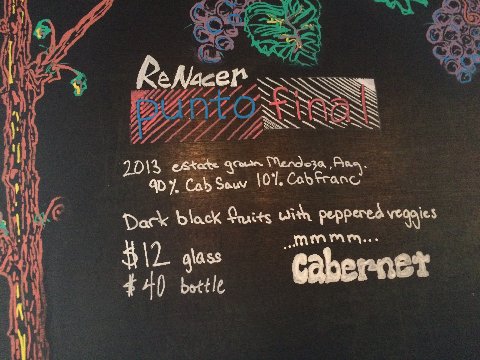 ReNacer
punto final
2013 estate grown Mendoza, Arg.
90% Cab Sauv 10% Cab Franc
Dark black fruits with peppered veggies
...mmmm...
$12 glass
Cabernet
$40 bottle